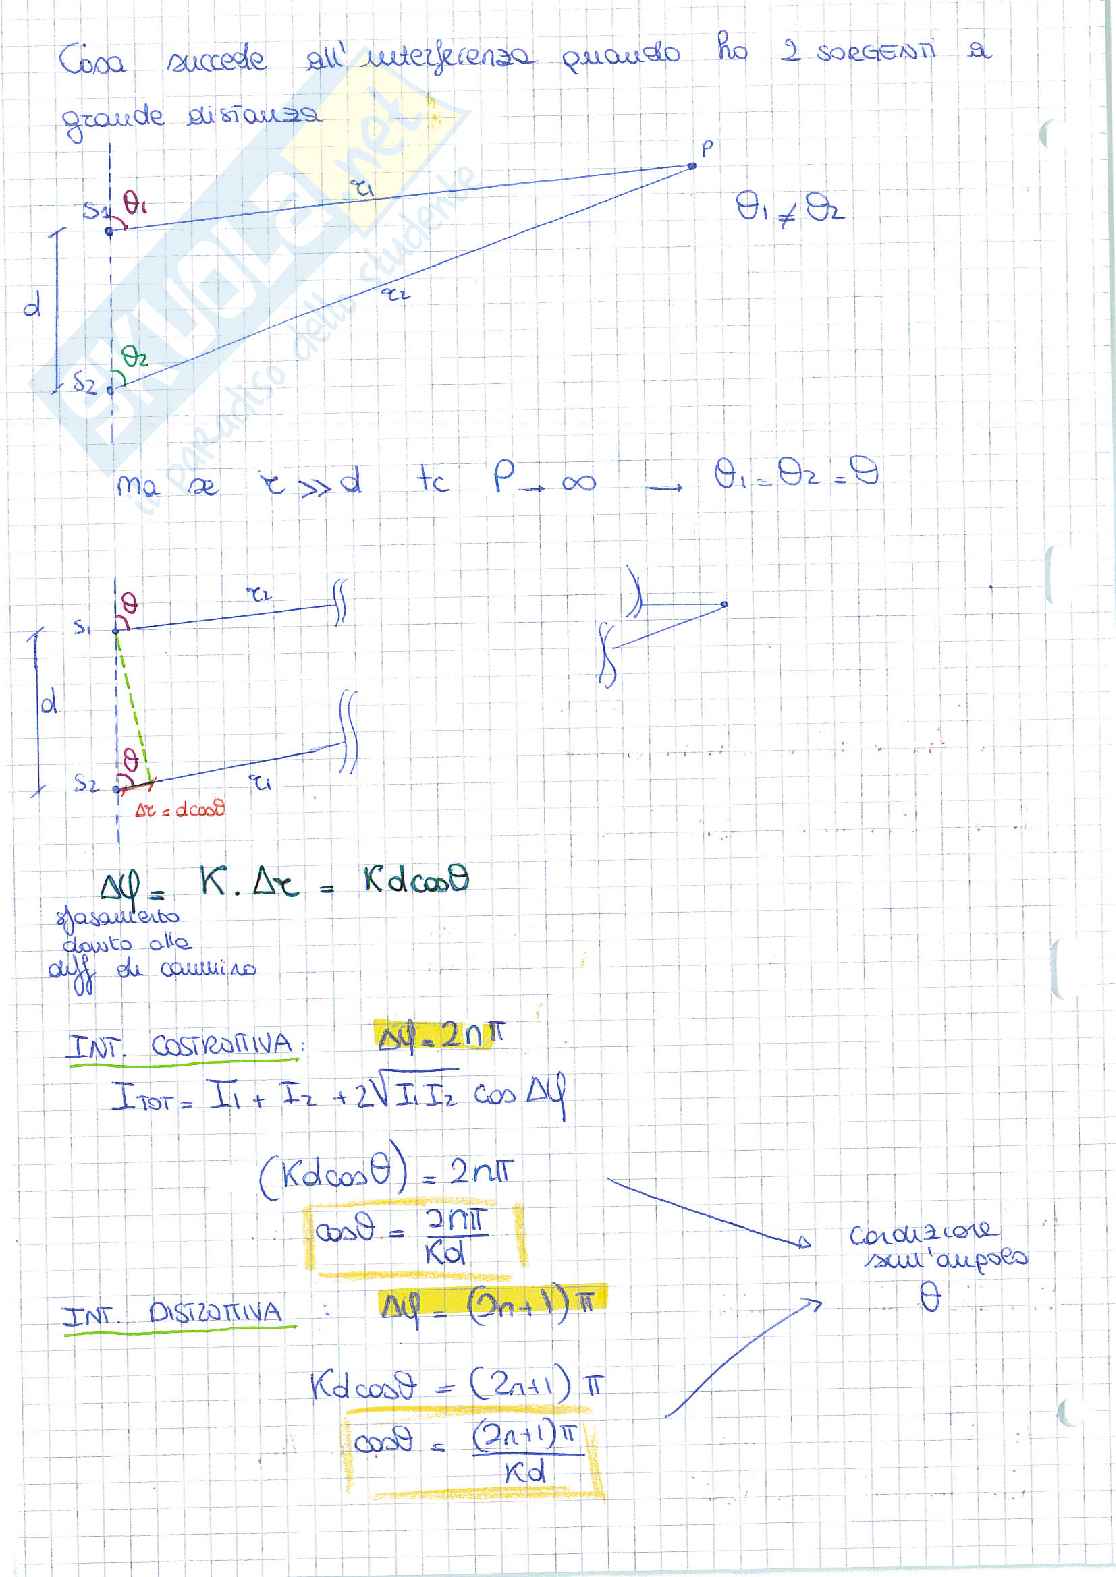 Cosa succede all'interferenza quando ho 2 SORGENTI a
grande distanza
P
S1 θ1 r1
θ1 ≠ θ2
d
r2
S2 θ2
SKUOLA.net
il paradiso dello studente
ma se r >> d tc P → ∞ → θ1 = θ2 = θ
S1 θ r2
d
S2 θ r1
Δr = d cosθ
Δφ = K · Δr = Kd cosθ
sfasamento
dovuto alla
diff di cammino
INT. COSTRUTTIVA: Δφ = 2nπ
ITOT = I1 + I2 + 2√I1 I2 cos Δφ
(Kd cosθ) = 2nπ
cosθ = 2nπ / Kd
condizione
sull'angolo
θ
INT. DISTRUTTIVA : Δφ = (2n+1)π
Kd cosθ = (2n+1) π
cosθ = (2n+1)π / Kd